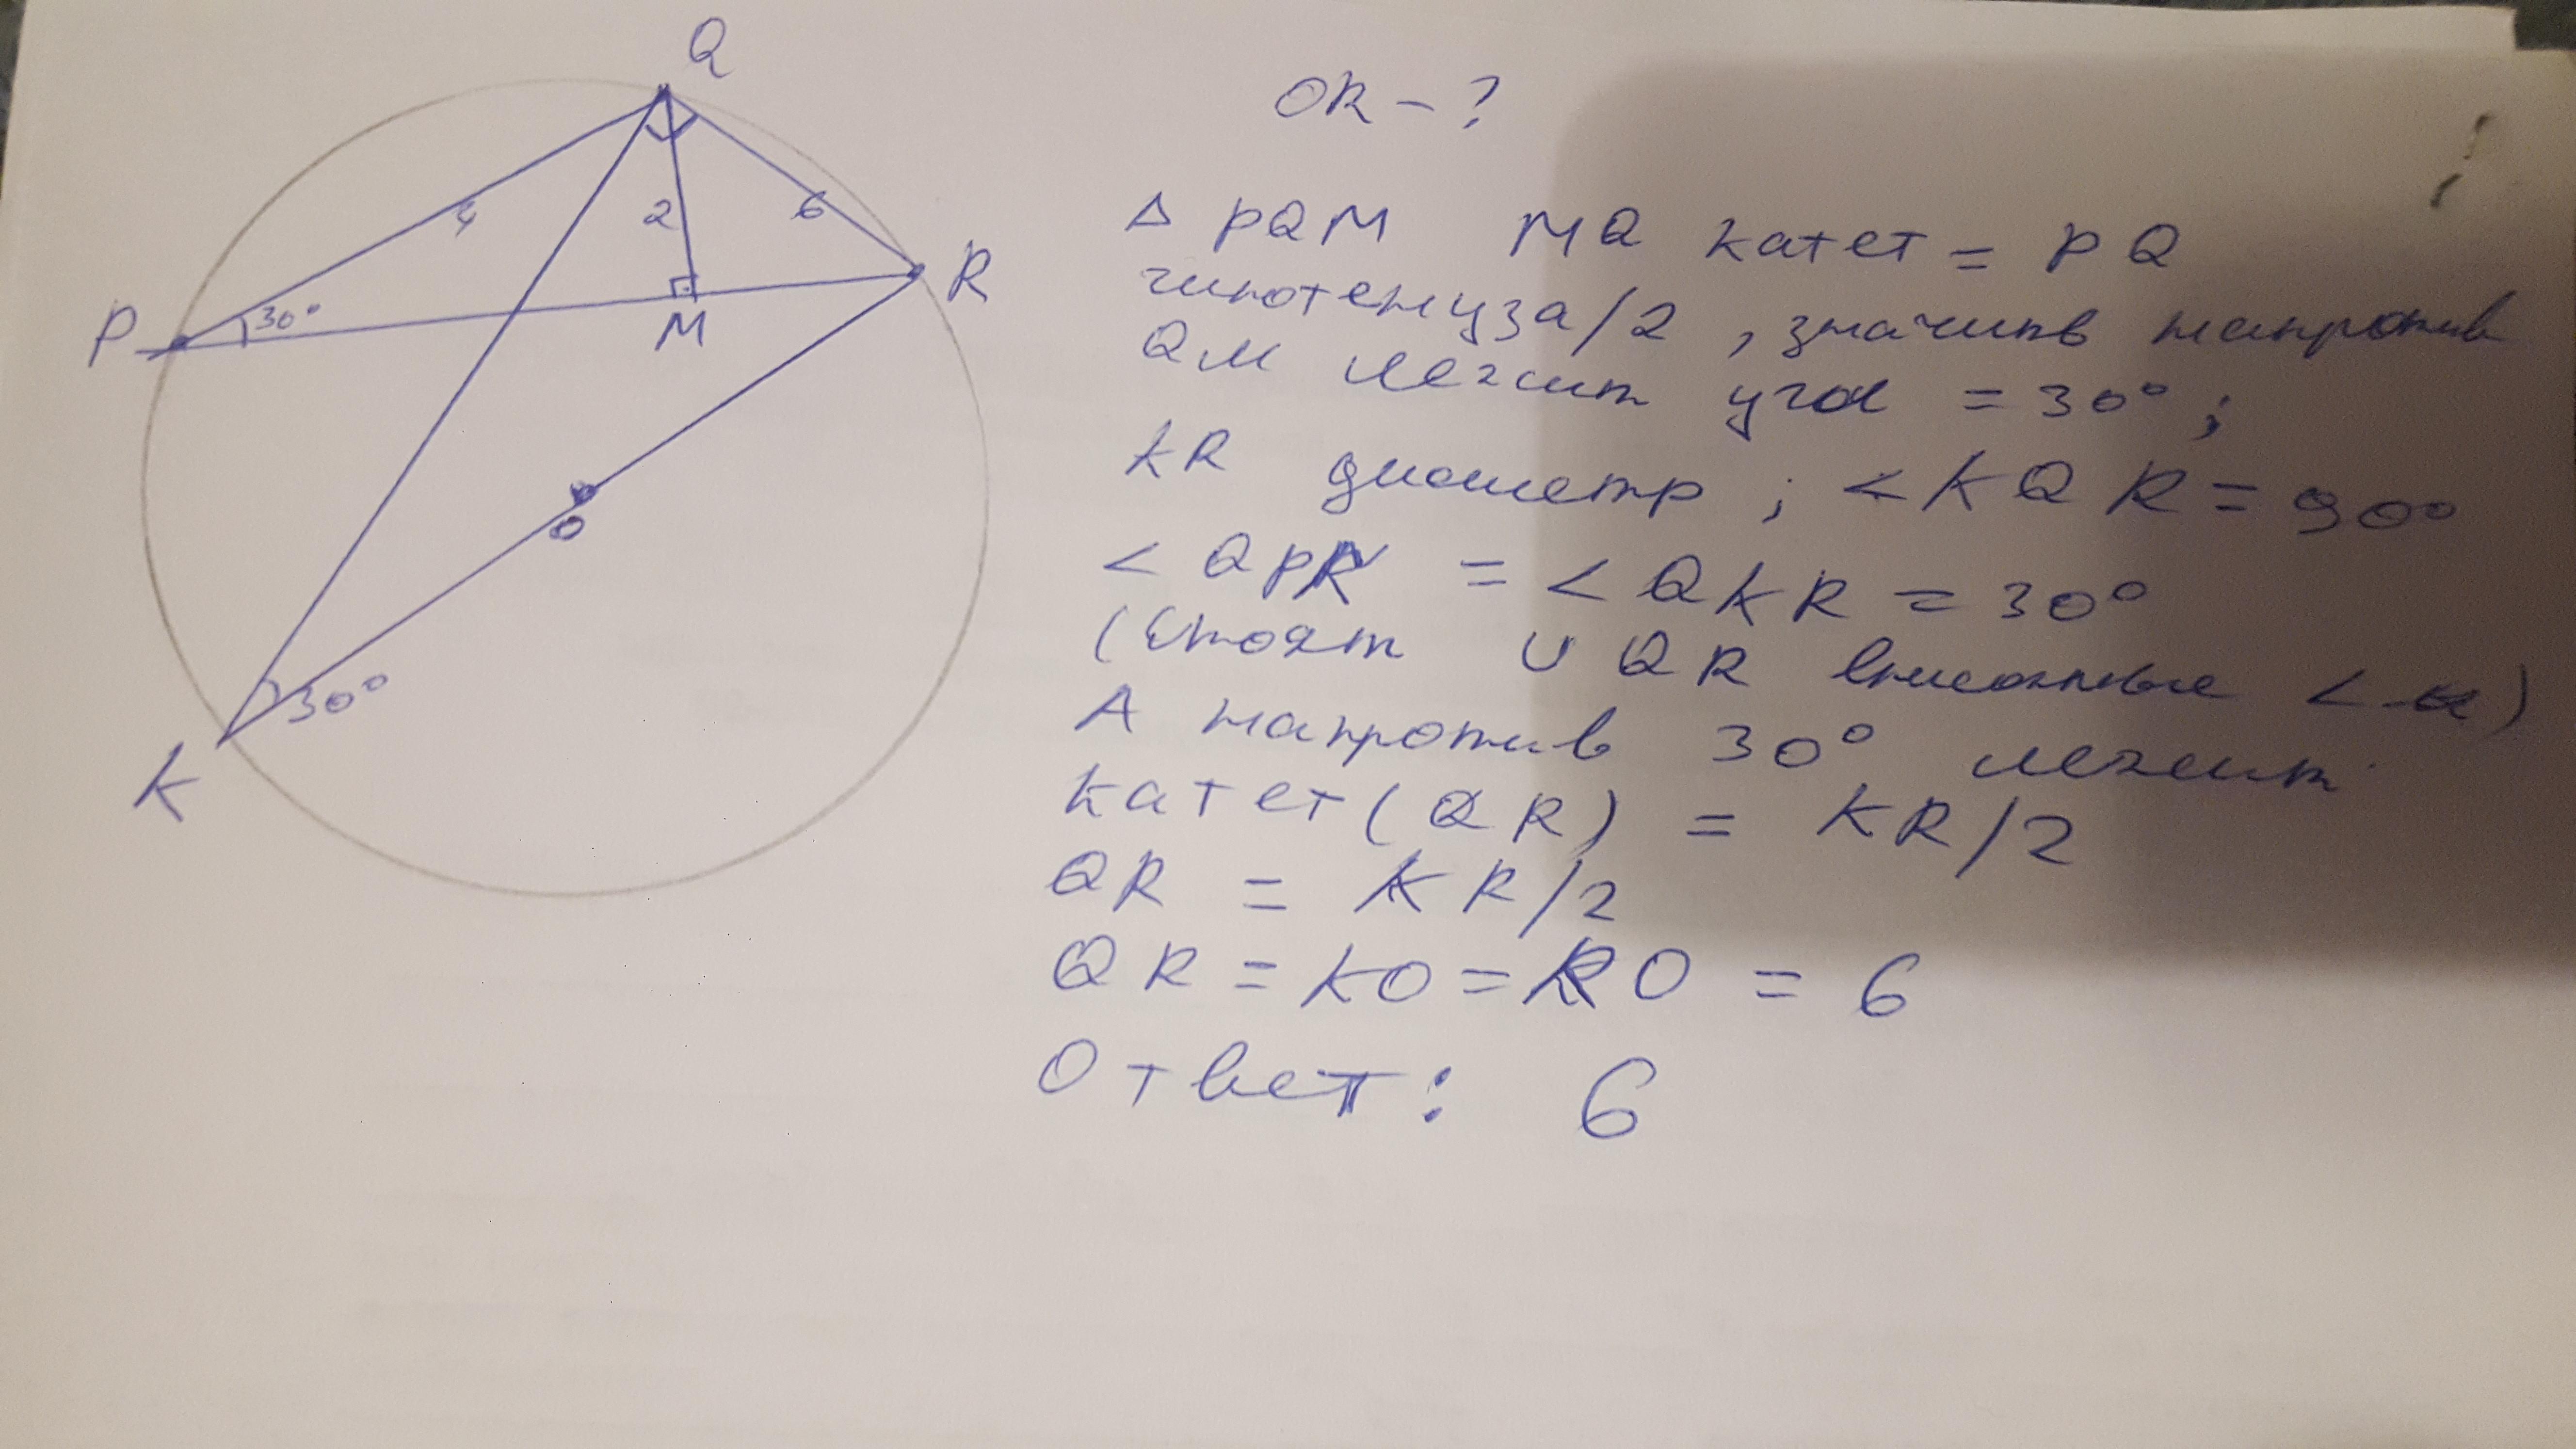 Q
4
2
6
R
P
30°
M
O
30°
K
OR - ?
△ PQM MQ катет = PQ
гипотенуза/2 , значит напротив
QM лежит угол = 30° ;
KR диаметр ; < KQR = 90°
< QPR = < QKR = 30°
(стоят ∪ QR вписанные <
А напротив 30° лежит
катет (QR) = KR/2
QR = KR/2
QR = KO = RO = 6
Ответ: 6